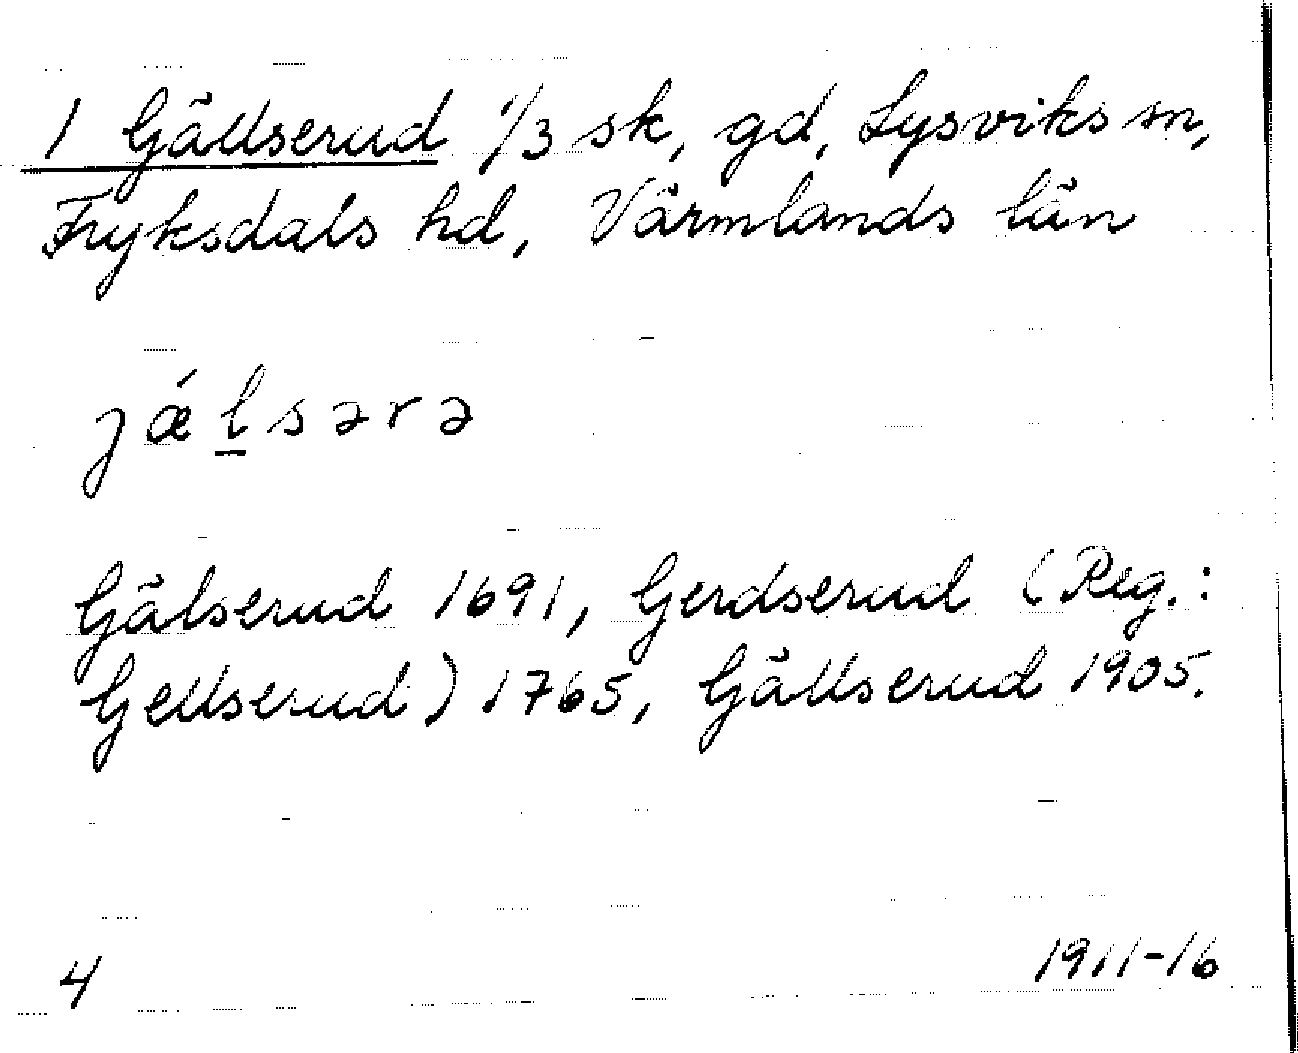 1 Gällserud 1/3 sk, gd, Lysviks sn,
Fryksdals hd, Värmlands län
jǽl̠sərə
Gälserud 1691, Gerdserud (Reg.:
Gellserud) 1765, Gällserud 1905.
4 1911-16